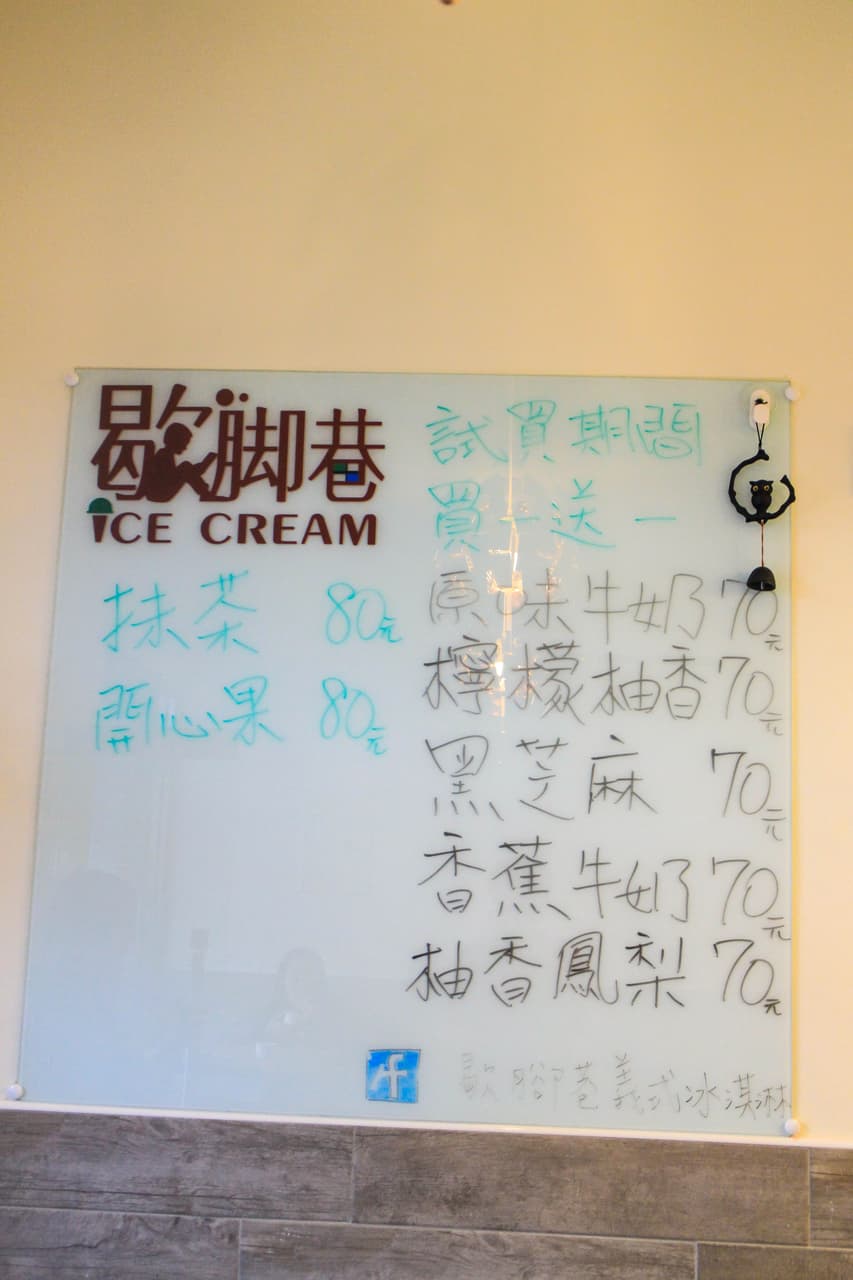 歇脚巷
ICE CREAM
試買期間
買一送一
抹茶 80元
開心果 80元
原味牛奶 70元
檸檬柚香 70元
黑芝麻 70元
香蕉牛奶 70元
柚香鳳梨 70元
f 歇腳巷義式冰淇淋